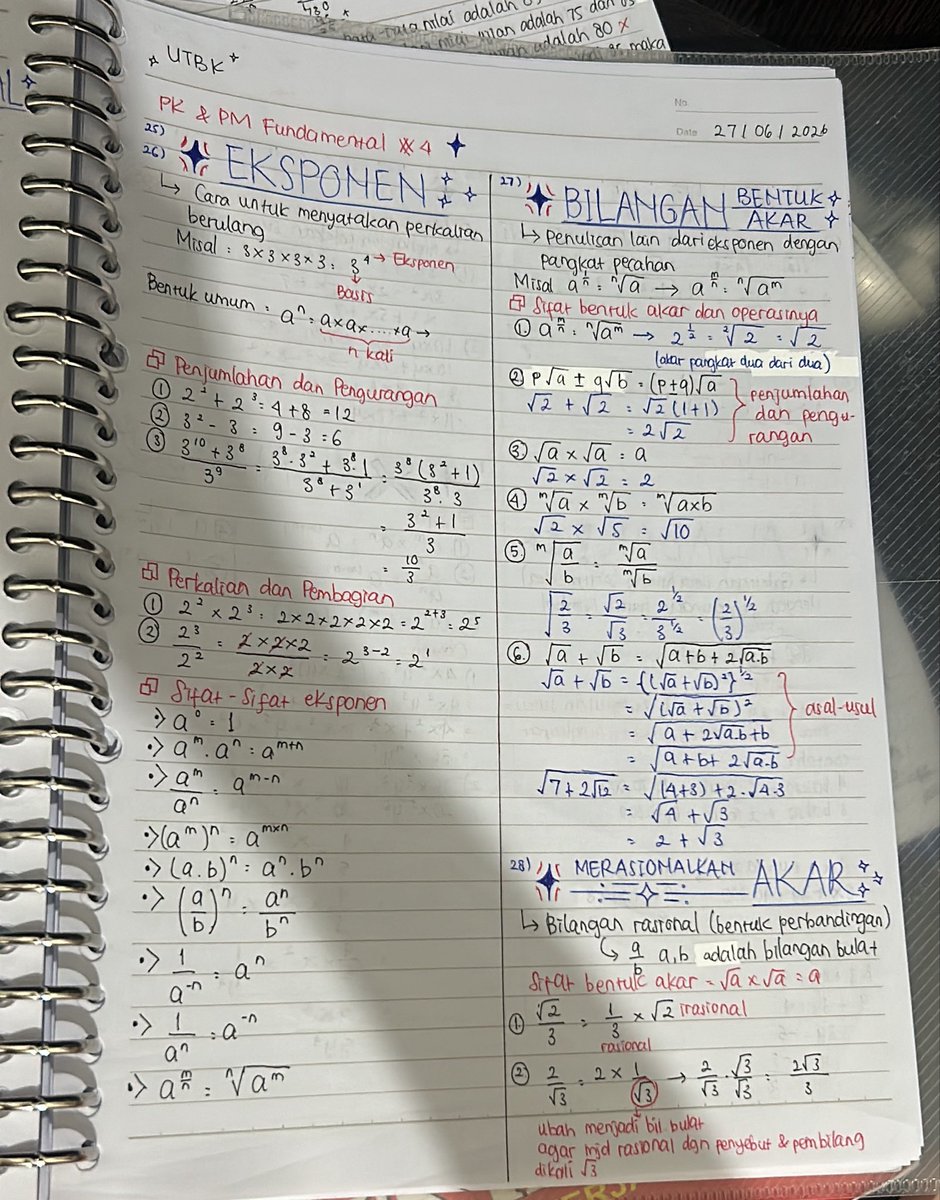 nilai adalah 75 dan 85
adalah 80 x
maka
UTBK
No
Date 27/06/2026
PK & PM Fundamental #4
25)
26) EKSPONEN
↳ Cara untuk menyatakan perkalian
berulang
Misal : 3×3×3×3 : 3⁴ → Eksponen
↓
Basis
Bentuk umum : aⁿ : a×a×....×a →
n kali
Penjumlahan dan Pengurangan
① 2² + 2³ : 4 + 8 = 12
② 3² - 3 : 9 - 3 : 6
③ (3¹⁰ + 3⁸)/3⁹ = (3⁸·3² + 3⁸·1)/(3⁸ + 3¹) : (3⁸(3²+1))/(3⁸·3)
= (3²+1)/3
= 10/3
Perkalian dan Pembagian
① 2² × 2³ : 2×2×2×2×2 = 2²⁺³ : 2⁵
② 2³/2² : (2×2×2)/(2×2) = 2³⁻² = 2¹
Sifat-Sifat eksponen
•> a⁰ : 1
•> aᵐ . aⁿ : aᵐ⁺ⁿ
•> aᵐ/aⁿ : aᵐ⁻ⁿ
•> (aᵐ)ⁿ : aᵐˣⁿ
•> (a.b)ⁿ : aⁿ.bⁿ
•> (a/b)ⁿ : aⁿ/bⁿ
•> 1/a⁻ⁿ : aⁿ
•> 1/aⁿ : a⁻ⁿ
•> a^(m/n) : ⁿ√aᵐ
27) BILANGAN BENTUK AKAR
↳ Penulisan lain dari eksponen dengan
pangkat pecahan
Misal a^(1/n) : ⁿ√a → a^(m/n) : ⁿ√aᵐ
Sifat bentuk akar dan operasinya
① a^(m/n) : ⁿ√aᵐ → 2^(1/2) : ²√2 : √2
(akar pangkat dua dari dua)
② p√a ± q√b = (p±q)√a
√2 + √2 = √2(1+1)
= 2√2
penjumlahan
dan pengu-
rangan
③ √a × √a : a
√2 × √2 = 2
④ ᵐ√a × ᵐ√b = ᵐ√a×b
√2 × √5 = √10
⑤ ᵐ√(a/b) : ᵐ√a/ᵐ√b
√(2/3) = √2/√3 = 2^(1/2)/3^(1/2) = (2/3)^(1/2)
⑥ √a + √b = √(a+b+2√a.b)
√a + √b = {(√a+√b)²}^(1/2)
= √((√a+√b)²)
= √(a + 2√a.b + b)
= √(a+b+ 2√a.b)
asal-usul
√(7+2√12) = √((4+3) + 2·√4·3)
= √4 + √3
= 2 + √3
28) MERASIONALKAN AKAR
↳ Bilangan rasional (bentuk perbandingan)
↳ a/b a,b adalah bilangan bulat
Sifat bentuk akar = √a × √a = a
① √2/3 = 1/3 × √2 irasional
rasional
② 2/√3 = 2 × 1/√3 → 2/√3 · √3/√3 : 2√3/3
ubah menjadi bil bulat
agar mjd rasional dgn penyebut & pembilang
dikali √3